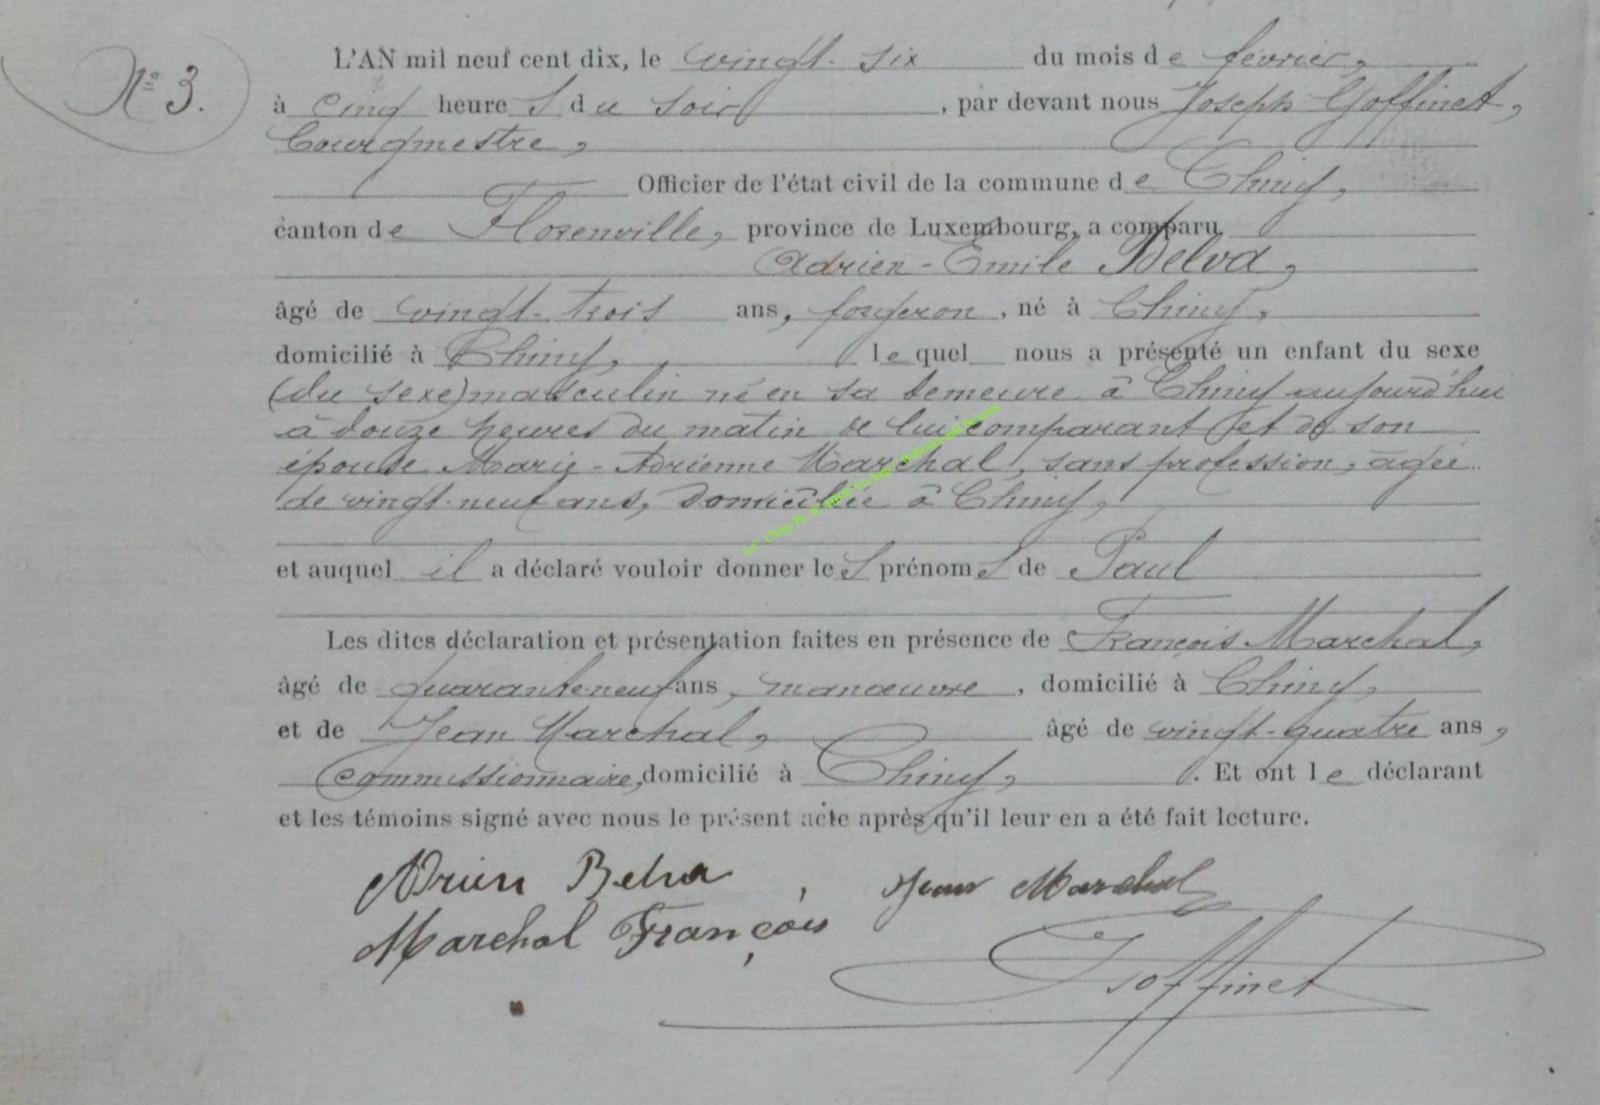 Nº 3.
L'AN mil neuf cent dix, le vingt-six du mois de février,
à cinq heures du soir, par devant nous Joseph Goffinet,
bourgmestre,
Officier de l'état civil de la commune de Chiny,
canton de Florenville, province de Luxembourg, a comparu
Adrien-Emile Belva,
âgé de vingt-trois ans, forgeron, né à Chiny,
domicilié à Chiny, lequel nous a présenté un enfant du sexe
(du sexe) masculin né en sa demeure à Chiny aujourd'hui
à douze heures du matin de lui comparant et de son
épouse Marie-Adrienne Marchal, sans profession, âgée
de vingt-neuf ans, domiciliée à Chiny,
et auquel il a déclaré vouloir donner les prénoms de Paul
Les dites déclaration et présentation faites en présence de François Marchal,
âgé de quarante-neuf ans, manœuvre, domicilié à Chiny,
et de Jean Marchal, âgé de vingt-quatre ans,
commissionnaire, domicilié à Chiny, . Et ont le déclarant
et les témoins signé avec nous le présent acte après qu'il leur en a été fait lecture.
Adrien Belva, Jean Marchal
Marchal François
JGoffinet